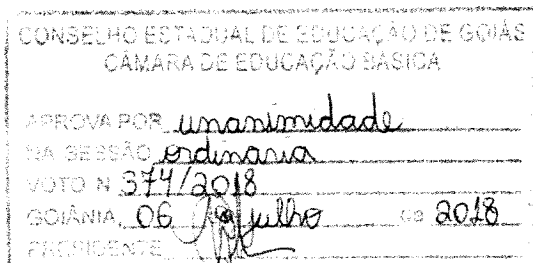 CONSELHO ESTADUAL DE EDUCAÇÃO DE GOIÁS
CÂMARA DE EDUCAÇÃO BÁSICA
APROVA POR unanimidade
NA SESSÃO ordinaria
VOTO N 374/2018
GOIÂNIA, 06 de julho de 2018
PRESIDENTE